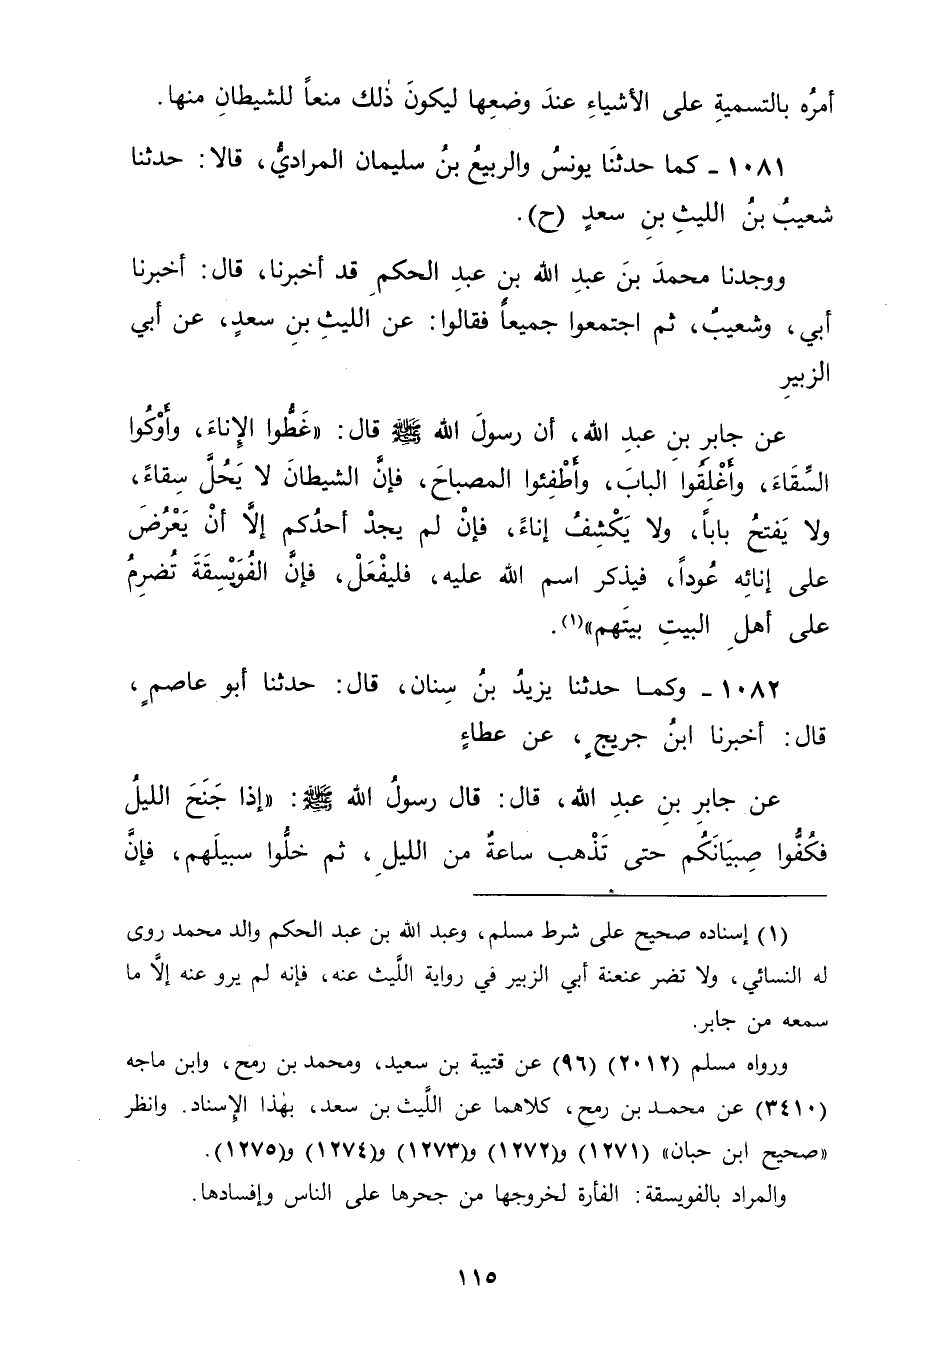 أمرُه بالتسميةِ على الأشياءِ عندَ وضعِها ليكونَ ذٰلك منعاً للشيطانِ منها.
١٠٨١ ـ كما حدثنَا يونسُ والربيعُ بنُ سليمان المراديُّ، قالا: حدثنا
شعيبُ بنُ الليثِ بنِ سعدٍ (ح).
ووجدنا محمدَ بنَ عبدِ الله بنِ عبدِ الحكمِ قد أخبرنا، قال: أخبرنا
أبي، وشعيبٌ، ثم اجتمعوا جميعاً فقالوا: عن الليثِ بنِ سعدٍ، عن أبي
الزبيرِ
عن جابرِ بنِ عبدِ الله، أن رسولَ الله ﷺ قال: «غَطُّوا الإِناءَ، وأَوْكُوا
السِّقَاءَ، وأَغْلِقُوا البابَ، وأَطْفِئوا المصباحَ، فإنَّ الشيطانَ لا يَحُلَّ سِقاءً،
ولا يَفتحُ باباً، ولا يَكْشِفُ إناءً، فإنْ لم يجدْ أحدُكم إلَّا أنْ يَعْرُضَ
على إنائِه عُوداً، فيذكر اسم الله عليه، فليفْعَلْ، فإنَّ الفُوَيْسِقَةَ تُضرِمُ
على أهلِ البيتِ بيتَهم»(١).
١٠٨٢ ـ وكما حدثنا يزيدُ بنُ سِنان، قال: حدثنا أبو عاصمٍ،
قال: أخبرنا ابنُ جريجٍ، عن عطاءٍ
عن جابرِ بنِ عبدِ الله، قال: قال رسولُ الله ﷺ: «إذا جَنَحَ الليلُ
فكُفُّوا صِبيَانَكُم حتى تَذْهب ساعةٌ من الليلِ، ثم خلُّوا سبيلَهم، فإنَّ
(١) إسناده صحيح على شرط مسلم، وعبد الله بن عبد الحكم والد محمد روى
له النسائي، ولا تضر عنعنة أبي الزبير في رواية اللَّيث عنه، فإنه لم يرو عنه إلَّا ما
سمعه من جابر.
ورواه مسلم (٢٠١٢) (٩٦) عن قتيبة بن سعيد، ومحمد بن رمح، وابن ماجه
(٣٤١٠) عن محمد بن رمح، كلاهما عن اللَّيث بن سعد، بهٰذا الإِسناد. وانظر
«صحيح ابن حبان» (١٢٧١) و(١٢٧٢) و(١٢٧٣) و(١٢٧٤) و(١٢٧٥).
والمراد بالفويسقة: الفأرة لخروجها من جحرها على الناس وإفسادها.
١١٥